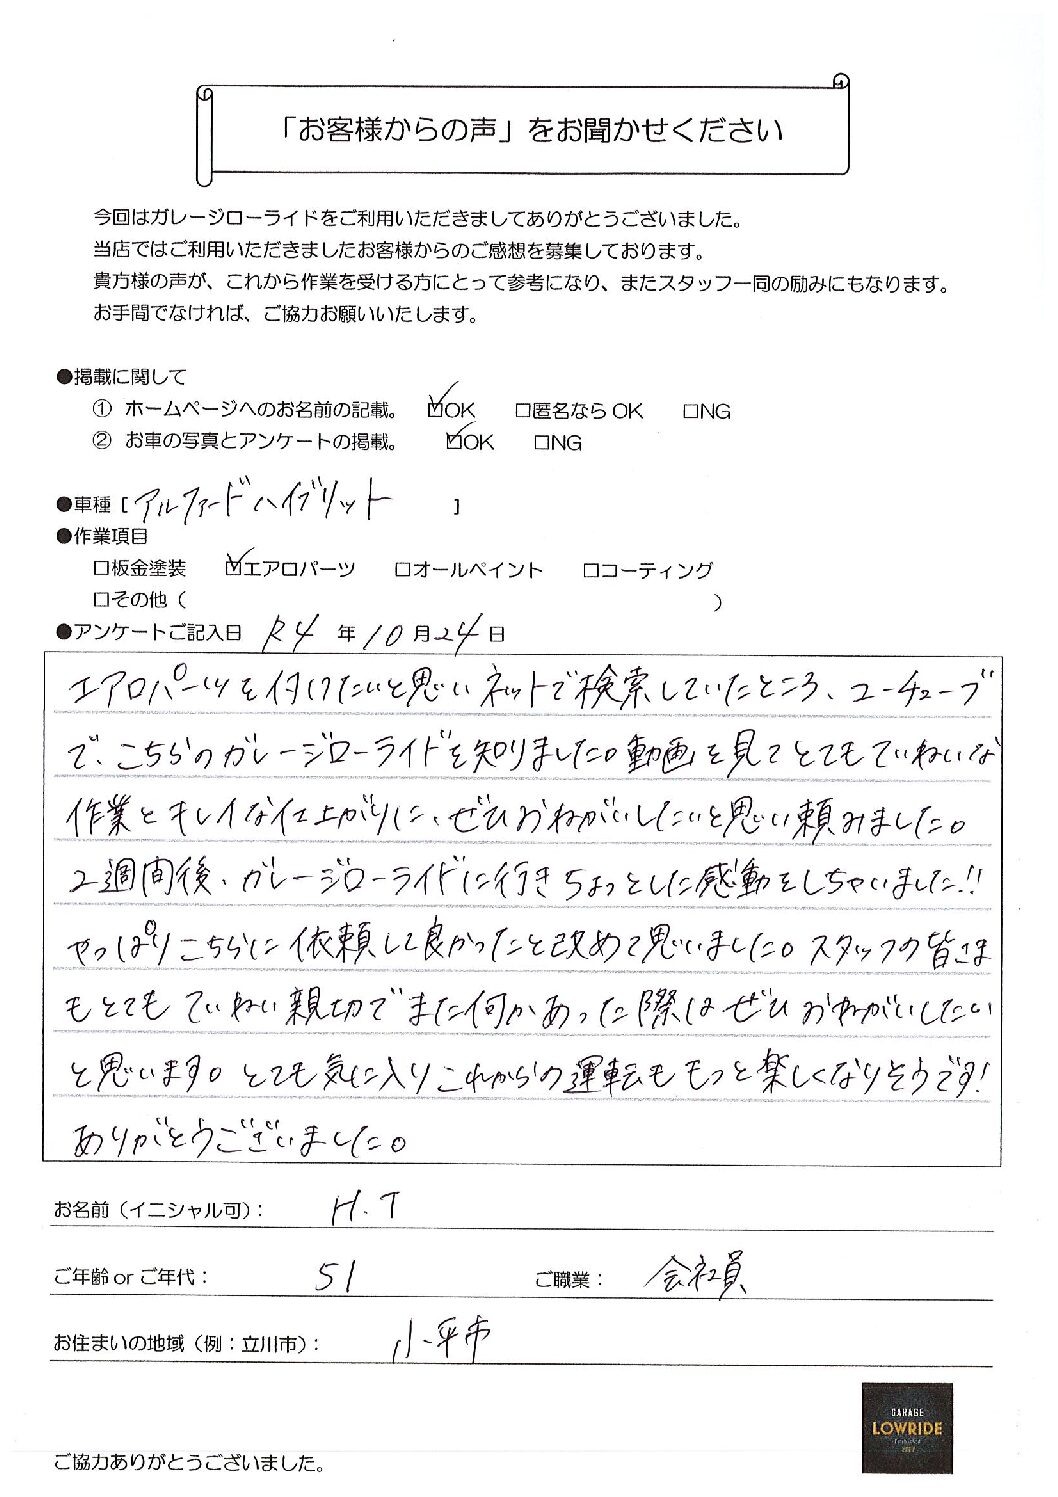 「お客様からの声」をお聞かせください
今回はガレージローライドをご利用いただきましてありがとうございました。
当店ではご利用いただきましたお客様からのご感想を募集しております。
貴方様の声が、これから作業を受ける方にとって参考になり、またスタッフ一同の励みにもなります。
お手間でなければ、ご協力お願いいたします。
●掲載に関して
① ホームページへのお名前の記載。 ☑OK □匿名なら OK □NG
② お車の写真とアンケートの掲載。 ☑OK □NG
●車種 [アルファードハイブリット]
●作業項目
□板金塗装 ☑エアロパーツ □オールペイント □コーティング
□その他（ ）
●アンケートご記入日 R4 年 10 月 24 日
エアロパーツを付けたいと思いネットで検索していたところ、ユーチューブ
で、こちらのガレージローライドを知りました。動画を見てとてもていねいな
作業とキレイな仕上がりに、ぜひおねがいしたいと思い頼みました。
2週間後、ガレージローライドに行きちょっとした感動をしちゃいました!!
やっぱりこちらに依頼して良かったと改めて思いました。スタッフの皆さま
もとてもていねい親切でまた何かあった際はぜひおねがいしたい
と思います。とても気に入りこれからの運転ももっと楽しくなりそうです!
ありがとうございました。
お名前（イニシャル可）： H.T
ご年齢 or ご年代： 51 ご職業： 会社員
お住まいの地域（例：立川市）： 小平市
GARAGE
LOWRIDE
ご協力ありがとうございました。